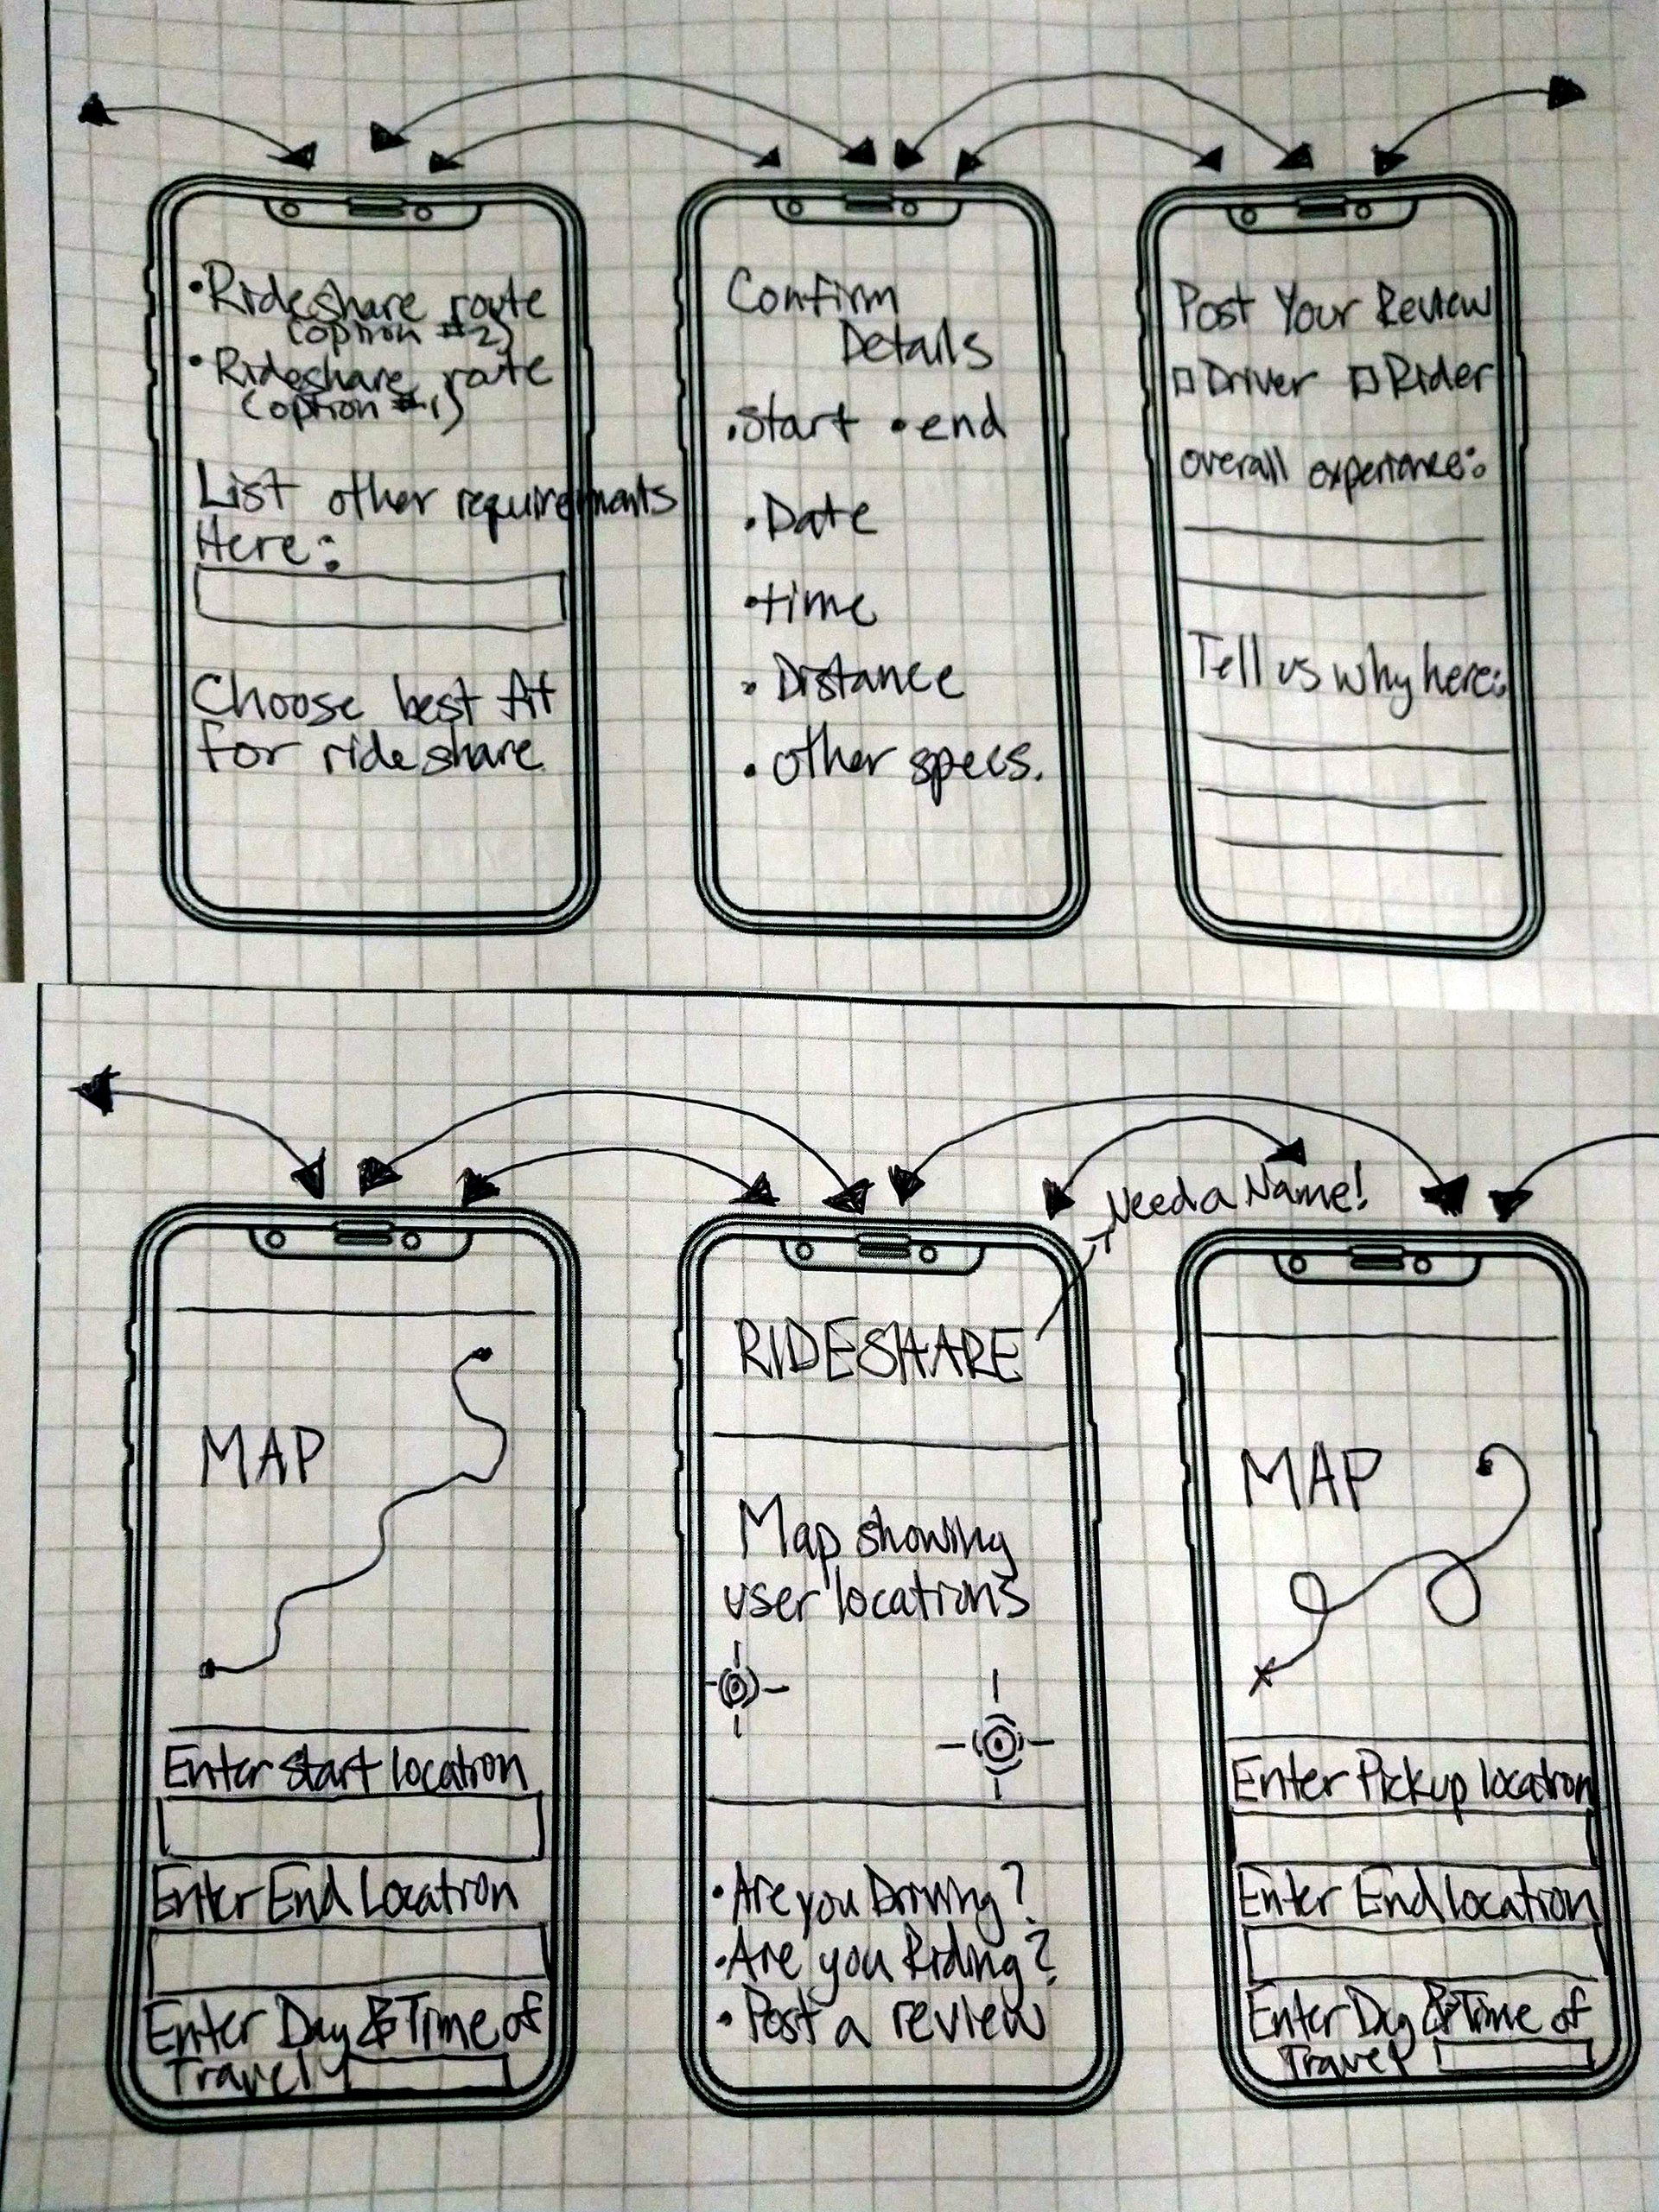 •Rideshare route
(option #2)
•Rideshare route
(option #1)
List other requirements
Here:
Choose best fit
for rideshare
Confirm
Details
•Start •end
•Date
•time
•Distance
•other specs.
Post Your Review
Driver Rider
overall experience:
Tell us why here:
MAP
Enter start location
Enter End Location
Enter Day & Time of
Travel
Need a Name!
RIDESHARE
Map showing
user locations
•Are you Driving?
•Are you Riding?
•Post a review
MAP
Enter Pickup location
Enter End location
Enter Day & Time of
Travel